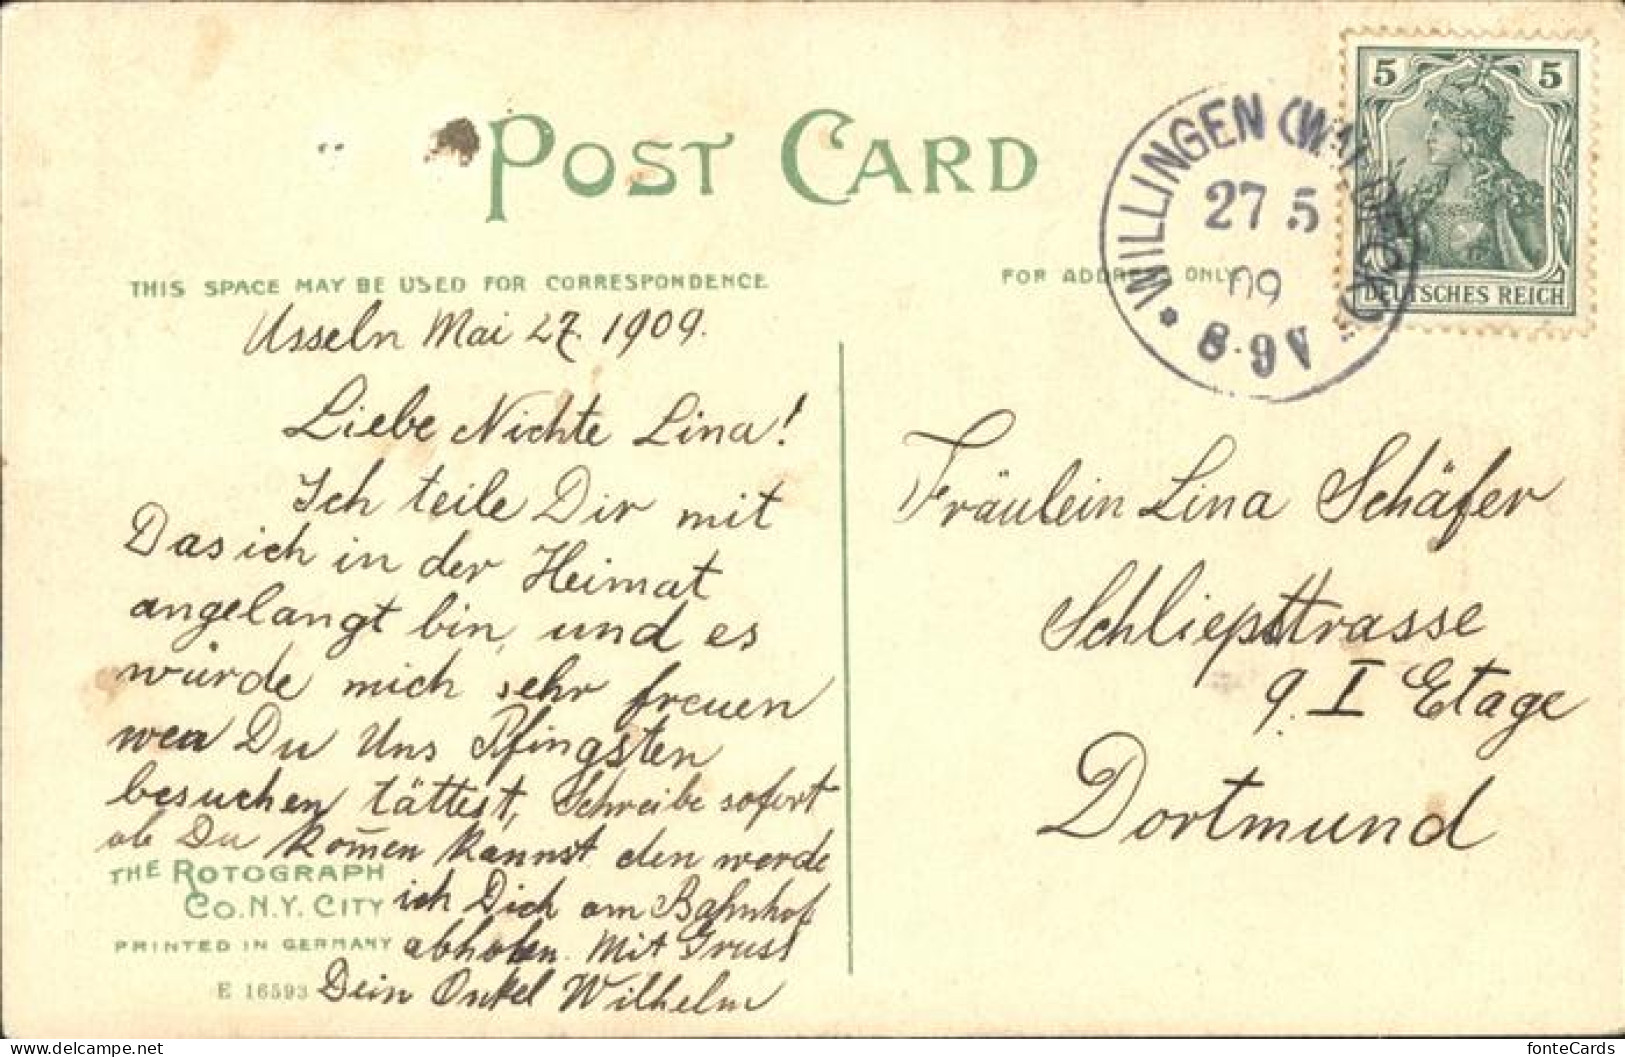 POST CARD
THIS SPACE MAY BE USED FOR CORRESPONDENCE
FOR ADDRESS ONLY
WILLINGEN (WALDECK)
27 5
09
8-9V
5 5
DEUTSCHES REICH
Usseln Mai 27. 1909.
Liebe Nichte Lina!
Ich teile Dir mit
Das ich in der Heimat
angelangt bin, und es
würde mich sehr freuen
wen Du Uns Pfingsten
besuchen tättest, Schreibe sofort
ob Du kom̄en kannst den werde
ich Dich am Bahnhof
abholen. Mit Gruss
Dein Onkel Wilhelm
THE ROTOGRAPH
CO. N.Y. CITY
PRINTED IN GERMANY
E 16593
Fräulein Lina Schäfer
Schliepstrasse
9. I Etage
Dortmund
www.delcampe.net
fonteCards